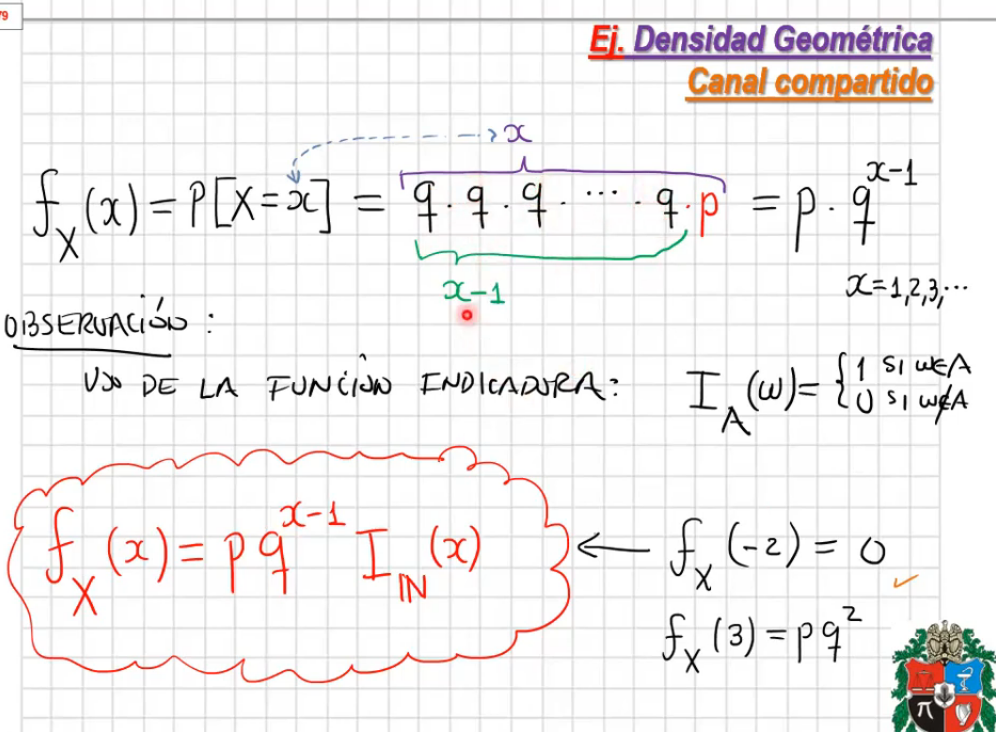 79
Ej. Densidad Geométrica
Canal compartido
x
f_X(x) = P[X=x] = q·q·q· ⋯ ·q·p = p·q^{x-1}
x-1
x=1,2,3,⋯
OBSERVACIÓN:
USO DE LA FUNCIÓN INDICADORA: I_A(ω)={1 si ω∈A
0 si ω∉A
f_X(x) = p q^{x-1} I_ℕ(x) ← f_X(-2) = 0 ✓
f_X(3) = p q^2
π